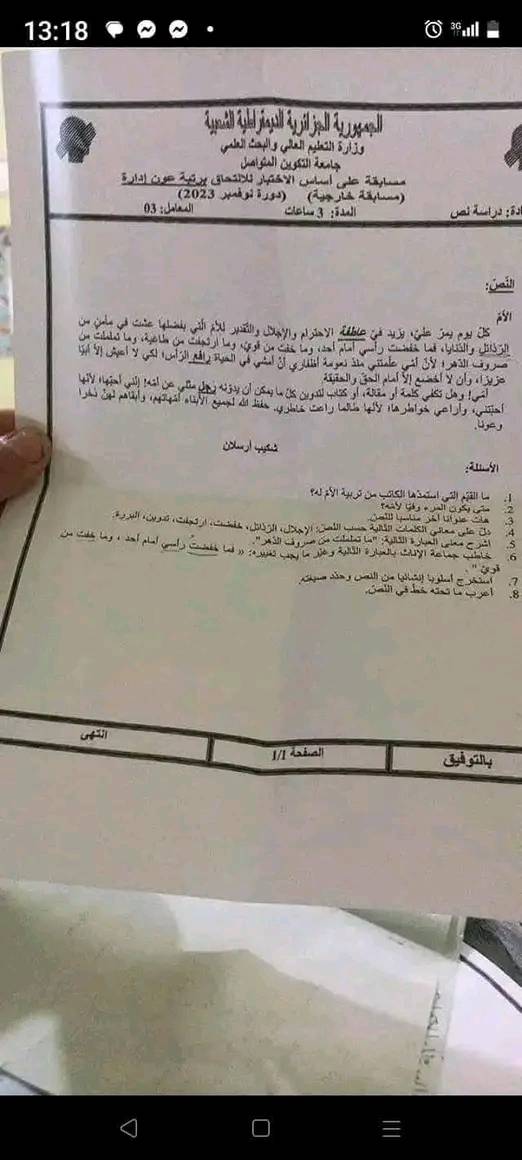 13:18
3G
الجمهورية الجزائرية الديمقراطية الشعبية
وزارة التعليم العالي والبحث العلمي
جامعة التكوين المتواصل
مسابقة على أساس الاختبار للالتحاق برتبة عون إدارة
(مسابقة خارجية) (دورة نوفمبر 2023)
دراسة نص المدة: 3 ساعات المعامل: 03
النّص:
الأمّ
كلّ يوم يمرّ عليّ، يزيد في عاطفة الاحترام والإجلال والتّقدير للأمّ الّتي بفضلها عشت في مأمن من
الرّذائل والدّنايا، فما خفضت رأسي أمام أحد، وما خفت من قويّ، وما ارتجفت من طاغية، وما تململت من
صروف الدّهر؛ لأنّ أمّي علّمتني منذ نعومة أظفاري أنْ أمشي في الحياة رافع الرّأس؛ لكي لا أعيش إلاّ أبيّا
عزيزا، وأن لا أخضع إلاّ أمام الحقّ والحقيقة
أمّي! وهل تكفي كلمة أو مقالة، أو كتاب لتدوين كلّ ما يمكن أن يدوّنه رجل مثلي عن أمّه! إنّني أحبّها؛ لأنّها
أحبّتني، وأراعي خواطرها؛ لأنّها طالما راعت خاطري. حفظ الله لجميع الأبناء أمّهاتهم، وأبقاهم لهنّ ذخرا
وعونا.
شكيب أرسلان
الأسئلة:
1. ما القيّم التي استمدّها الكاتب من تربية الأمّ له؟
2. متى يكون المرء وفيّا لأمّه؟
3. هات عنوانا آخر مناسبا للنّص.
4. دلّ على معاني الكلمات التّالية حسب النّص: الإجلال، الرّذائل، خفضت، ارتجفت، تدوين، البررة.
5. اشرح معنى العبارة التّالية: "ما تململت من صروف الدّهر".
6. خاطب جماعة الإناث بالعبارة التّالية وغيّر ما يجب تغييره: « فما خفضتُ رأسي أمام أحد ، وما خفت من
قويّ ".
7. استخرج أسلوبا إنشائيا من النص وحدّد صيغته.
8. أعرب ما تحته خطّ في النّص.
بالتوفيق الصفحة 1/1 انتهى